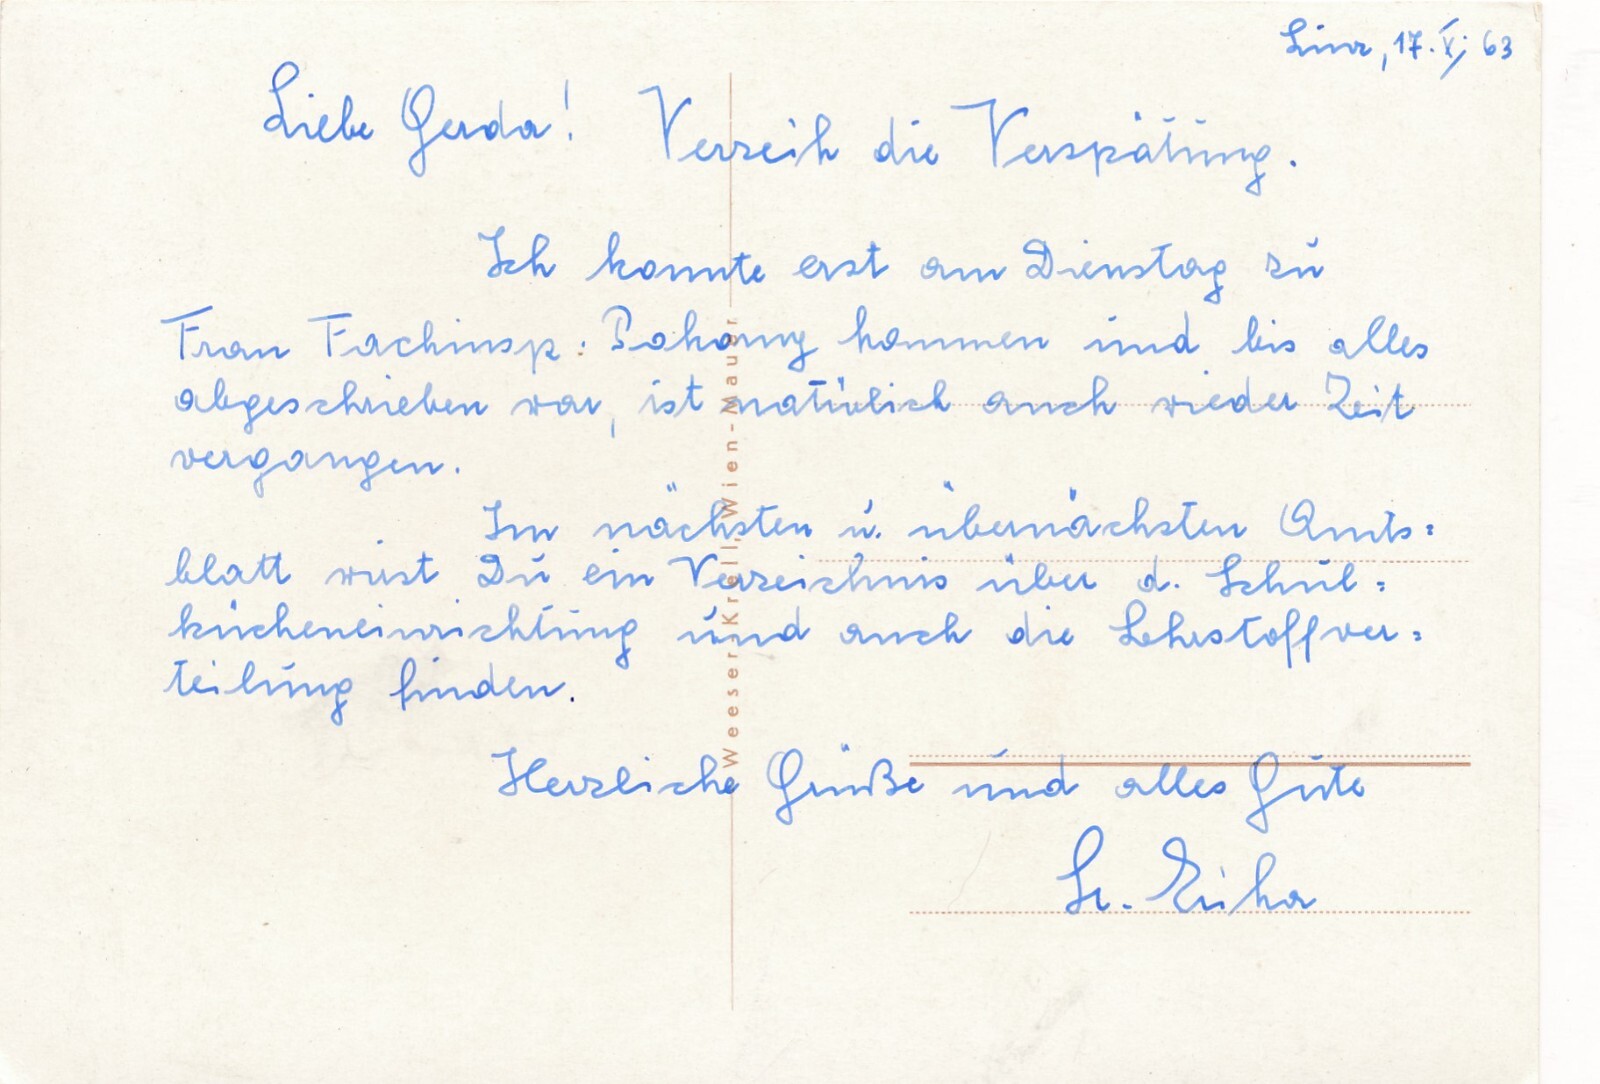 Linz, 17. X. 63
Liebe Gerda! Verzeih die Verspätung.
Ich konnte erst am Dienstag zu
Frau Fachinsp: Pokorny kommen und bis alles
abgeschrieben war, ist natürlich auch wieder Zeit
vergangen.
Im nächsten u. übernächsten Amts=
blatt wirst Du ein Verzeichnis über d. Schul=
kücheneinrichtung und auch die Lehrstoffver=
teilung finden.
Herzliche Grüße und alles Gute
Sr. Erika
Weeser-Krell, Wien-Mauer